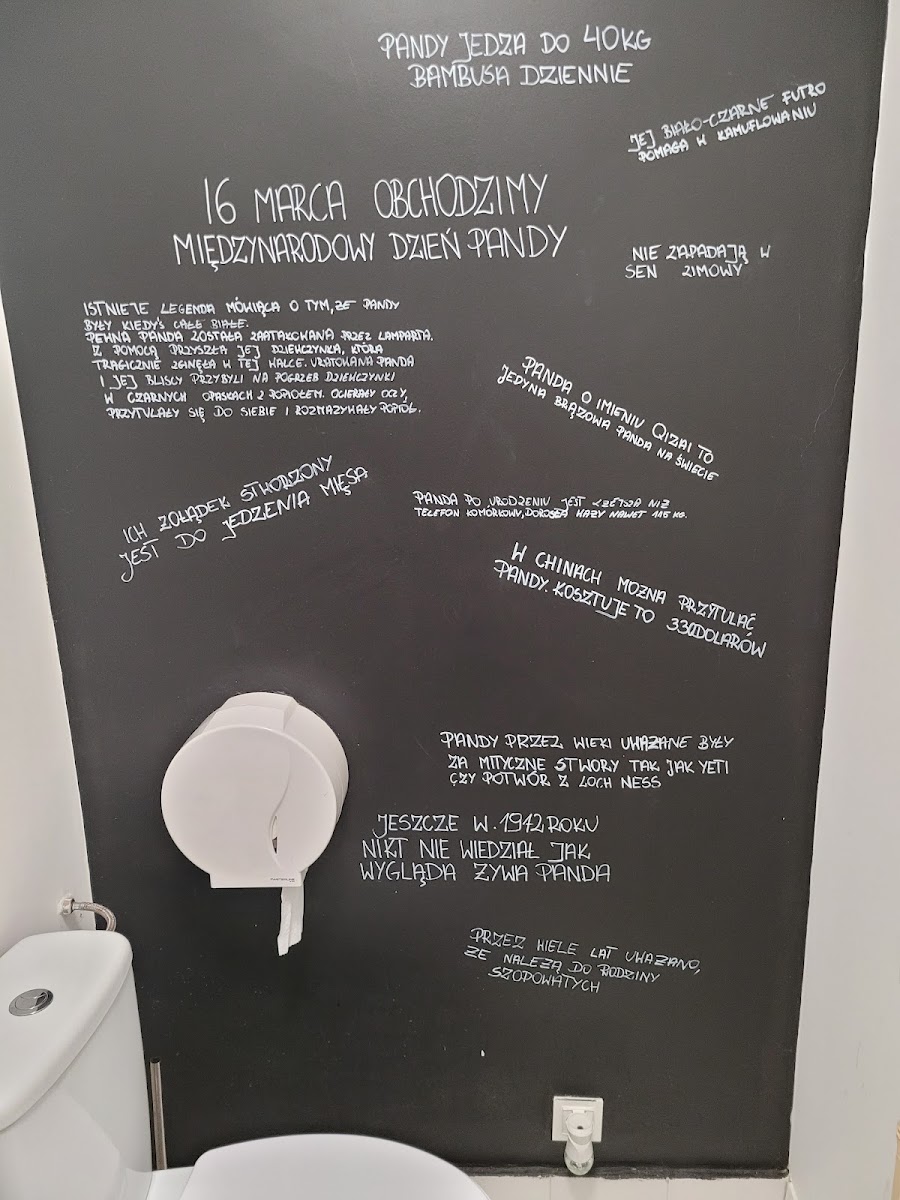 PANDY JEDZA DO 40KG
BAMBUSA DZIENNIE
JEJ BIAŁO-CZARNE FUTRO
POMAGA W KAMUFLOWANIU
16 MARCA OBCHODZIMY
MIĘDZYNARODOWY DZIEŃ PANDY
NIE ZAPADAJĄ W
SEN ZIMOWY
ISTNIEJE LEGENDA MÓWIĄCA O TYM, ŻE PANDY
BYŁY KIEDYŚ CAŁE BIAŁE.
PEWNA PANDA ZOSTAŁA ZAATAKOWANA PRZEZ LAMPARTA.
Z POMOCĄ PRZYSZŁA JEJ DZIEWCZYNKA, KTÓRA
TRAGICZNIE ZGINĘŁA W TEJ WALCE. URATOWANA PANDA
I JEJ BLISCY PRZYBYLI NA POGRZEB DZIEWCZYNKI
W CZARNYCH OPASKACH Z POPIOŁEM. OCIERAŁY OCZY,
PRZYTULAŁY SIĘ DO SIEBIE I ROZMAZYWAŁY POPIÓŁ.
PANDA O IMIENIU QIZAI TO
JEDYNA BRĄZOWA PANDA NA ŚWIECIE
ICH ŻOŁĄDEK STWORZONY
JEST DO JEDZENIA MIĘSA
PANDA PO URODZENIU JEST LŻEJSZA NIŻ
TELEFON KOMÓRKOWY, DOROSŁA WAŻY NAWET 115 KG.
W CHINACH MOŻNA PRZYTULAĆ
PANDY. KOSZTUJE TO 330DOLARÓW
PANDY PRZEZ WIEKI UWAŻANE BYŁY
ZA MITYCZNE STWORY TAK JAK YETI
CZY POTWÓR Z LOCH NESS
JESZCZE W. 1942 ROKU
NIKT NIE WIEDZIAŁ JAK
WYGLĄDA ŻYWA PANDA
PRZEZ WIELE LAT UWAŻANO,
ŻE NALEŻĄ DO RODZINY
SZOPOWATYCH